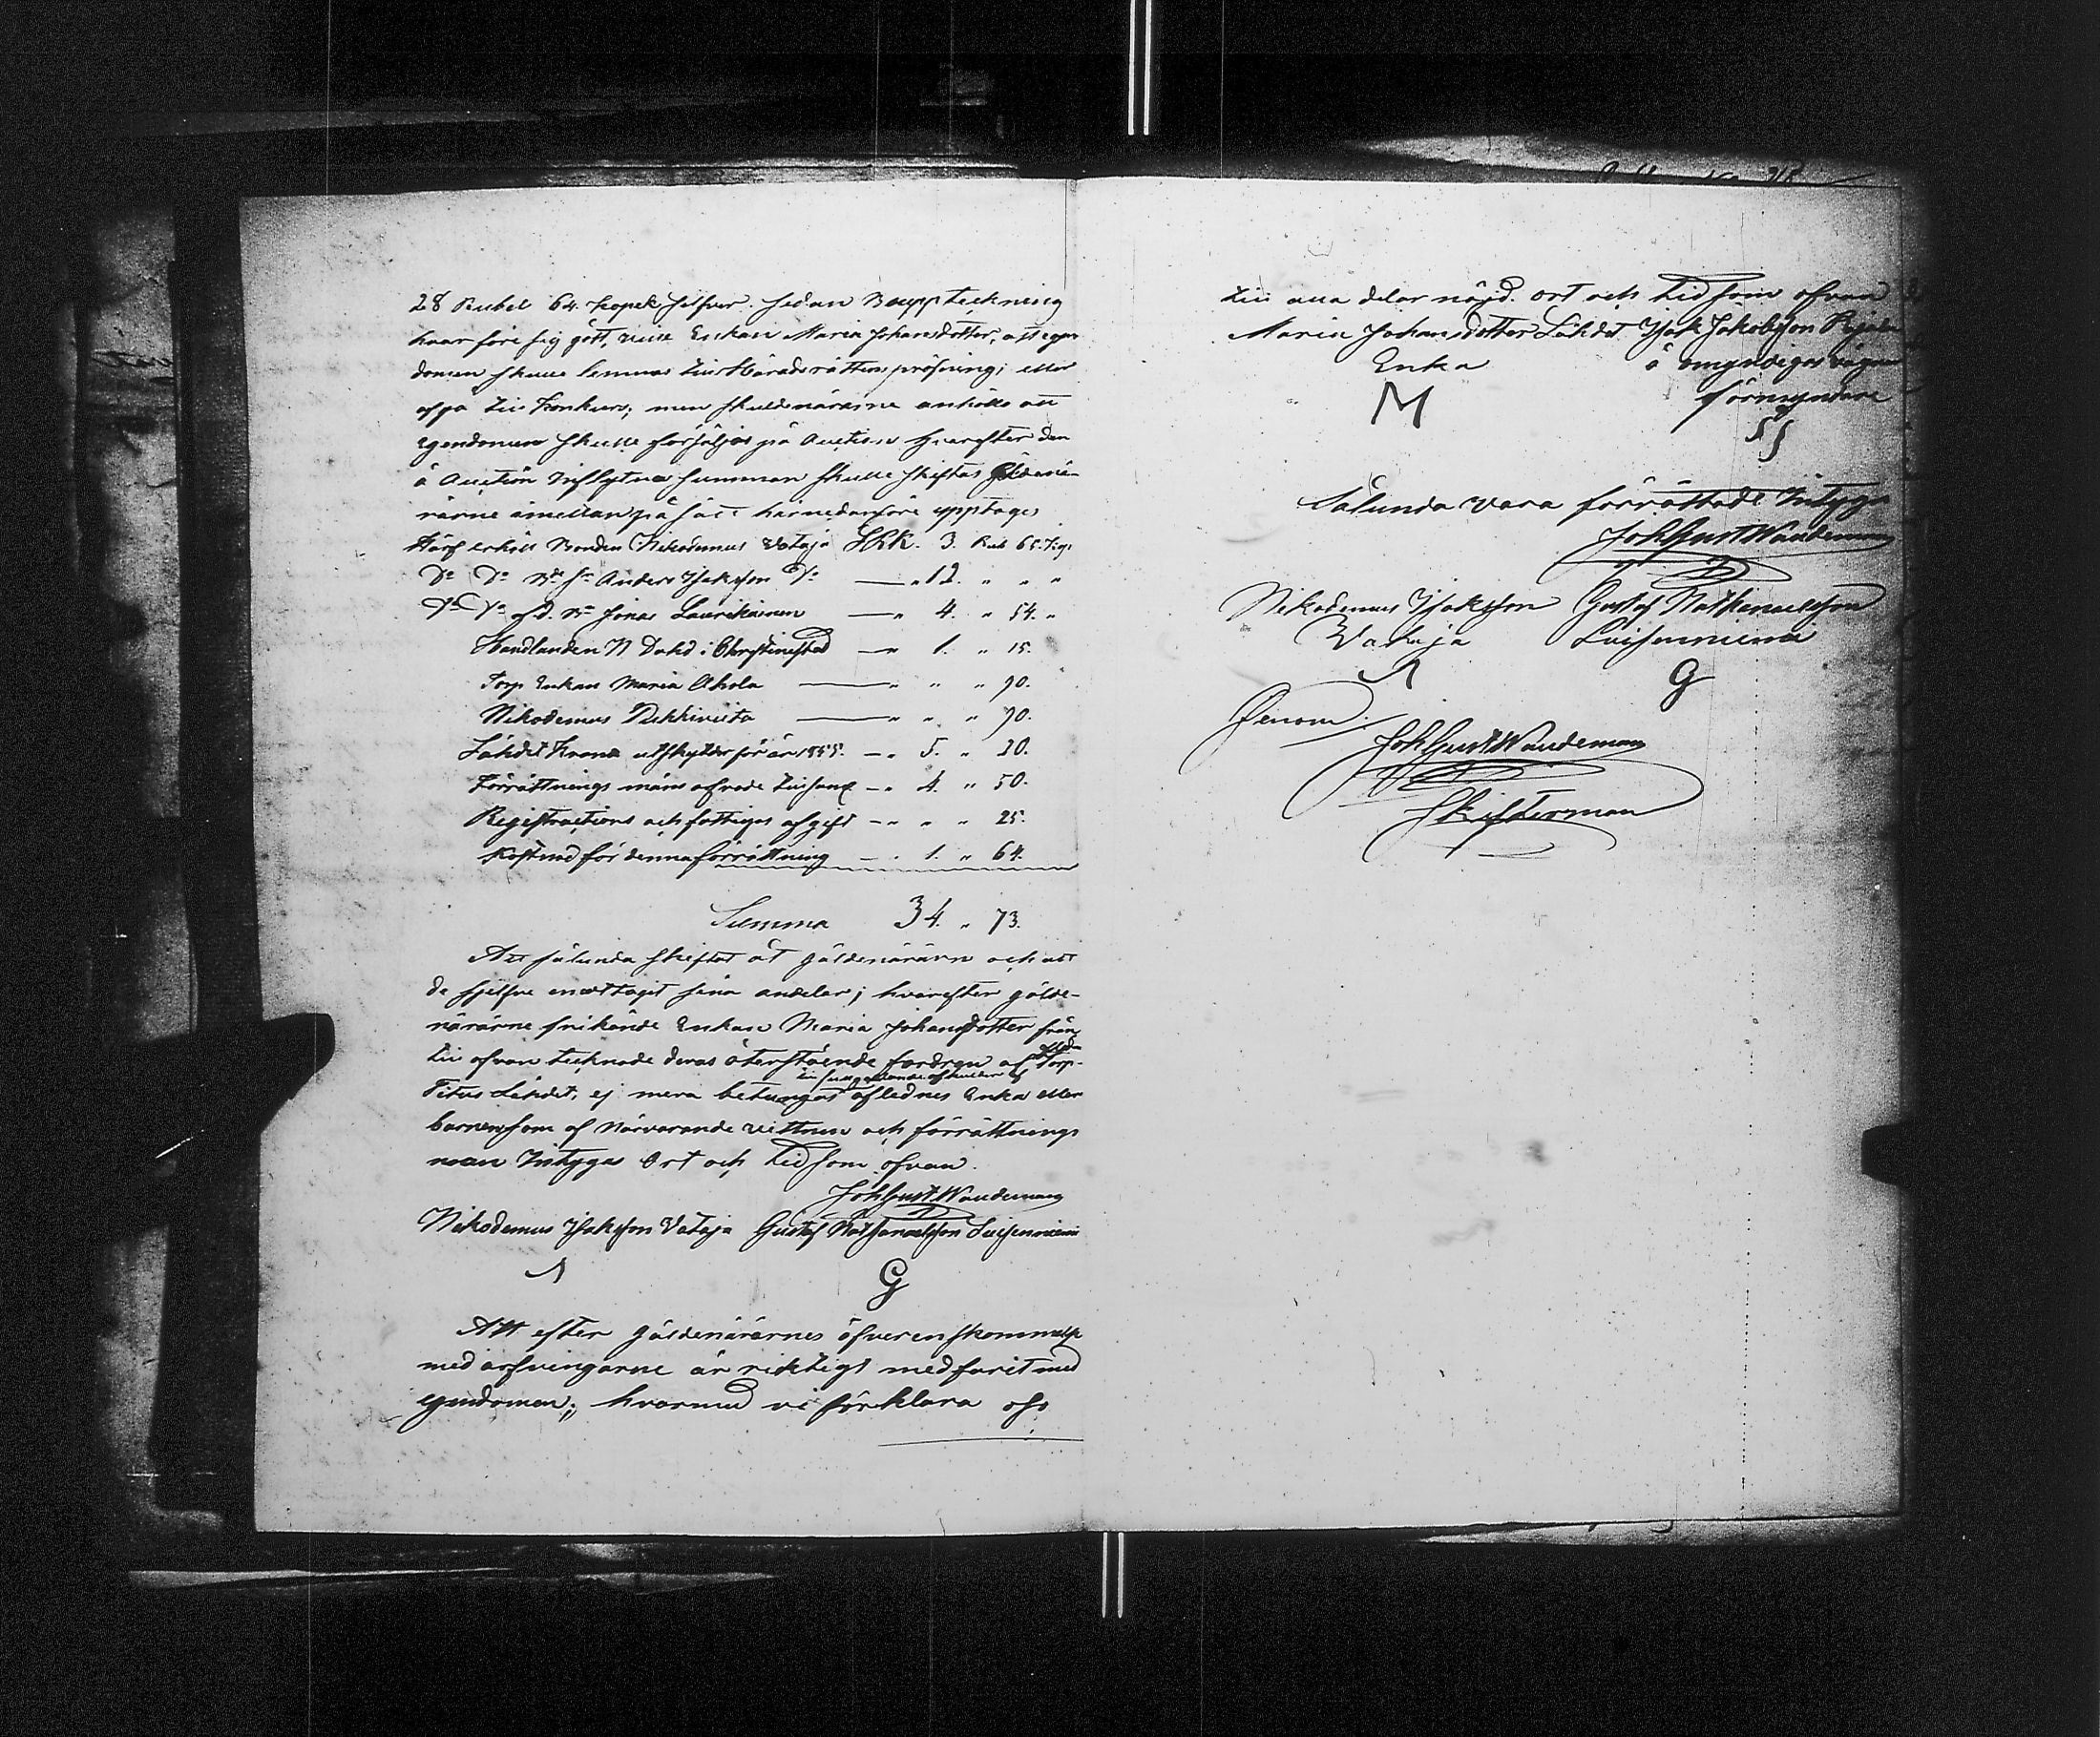 28 Rubel 64. kopek silfver. sedan Boupptekning
haar före sig gått, ville Enkan Maria Johansdotter, att egen
domen skulle lemnas till Häradsrättens pröfning; eller
men skuldenärarne anhölle att
Egendomen skulle försäljas på Auction hvarefter den
å Auction influtna summan skulle skiftas Gäldenä-
rärne imellan på sätt härnedanföre upptages
Bonden Nikodemus Vataja SRk. 3. Rub 65. Kop
Do Do Anders Isaksson Do — " 12. " " "
Do Do Jonas Laurikainen — " 4. " 54. "
Handlanden N Dahl i Christinestad — " 1. " 15.
Torp Enkan Maria Ahola — " " " 90.
Nikodemus — " " " 90.
Lähdet Krono utskylder för år 1855. — " 5. " 20.
Förrättnings mäns arfvode tillsam — " 4. " 50.
Registrations och fattigas afgift — " " " 25.
Kostnad för denna förrättning — " 1. " 64.
Summa 34. " 73.
Att sålunda skiftat åt gäldenärärn och att
de sjelfve emottagit sina andelar; hvarefter gälde-
närärne frikände Enkan Maria Johansdotter från
till ofvan tecknade deras återstående fordran af Torp-
Titus Lähdet, ej mera betungas aflednes Enka eller
barnen som af närvarande vittnen och förrättnings
man Intygas Ort och tid som ofvan.
Joh Gust Wandeman
Nikodemus Isaksson Vataja Gustaf Nathanaelsson Luisunniemi
N G
Att efter gäldenärärnes öfverenskommelse
med arfvingarne är riktigt medfarit med
egendomen; hvarmed vi förklara oss
till alla delar nöjd. Ort och tid som ofvan
Maria Johansdotter Lähdet Isak Jakobsson
Enka å omyndigas vägnar
M förmyndare
Sålunda vara förrättadt Intyga
Joh Gust Wandeman
Nikodemus Isaksson Gustaf Nathanaelsson
Vataja Luisunniemi
N G
Genom.
Joh Gust Wandeman
Skifterman